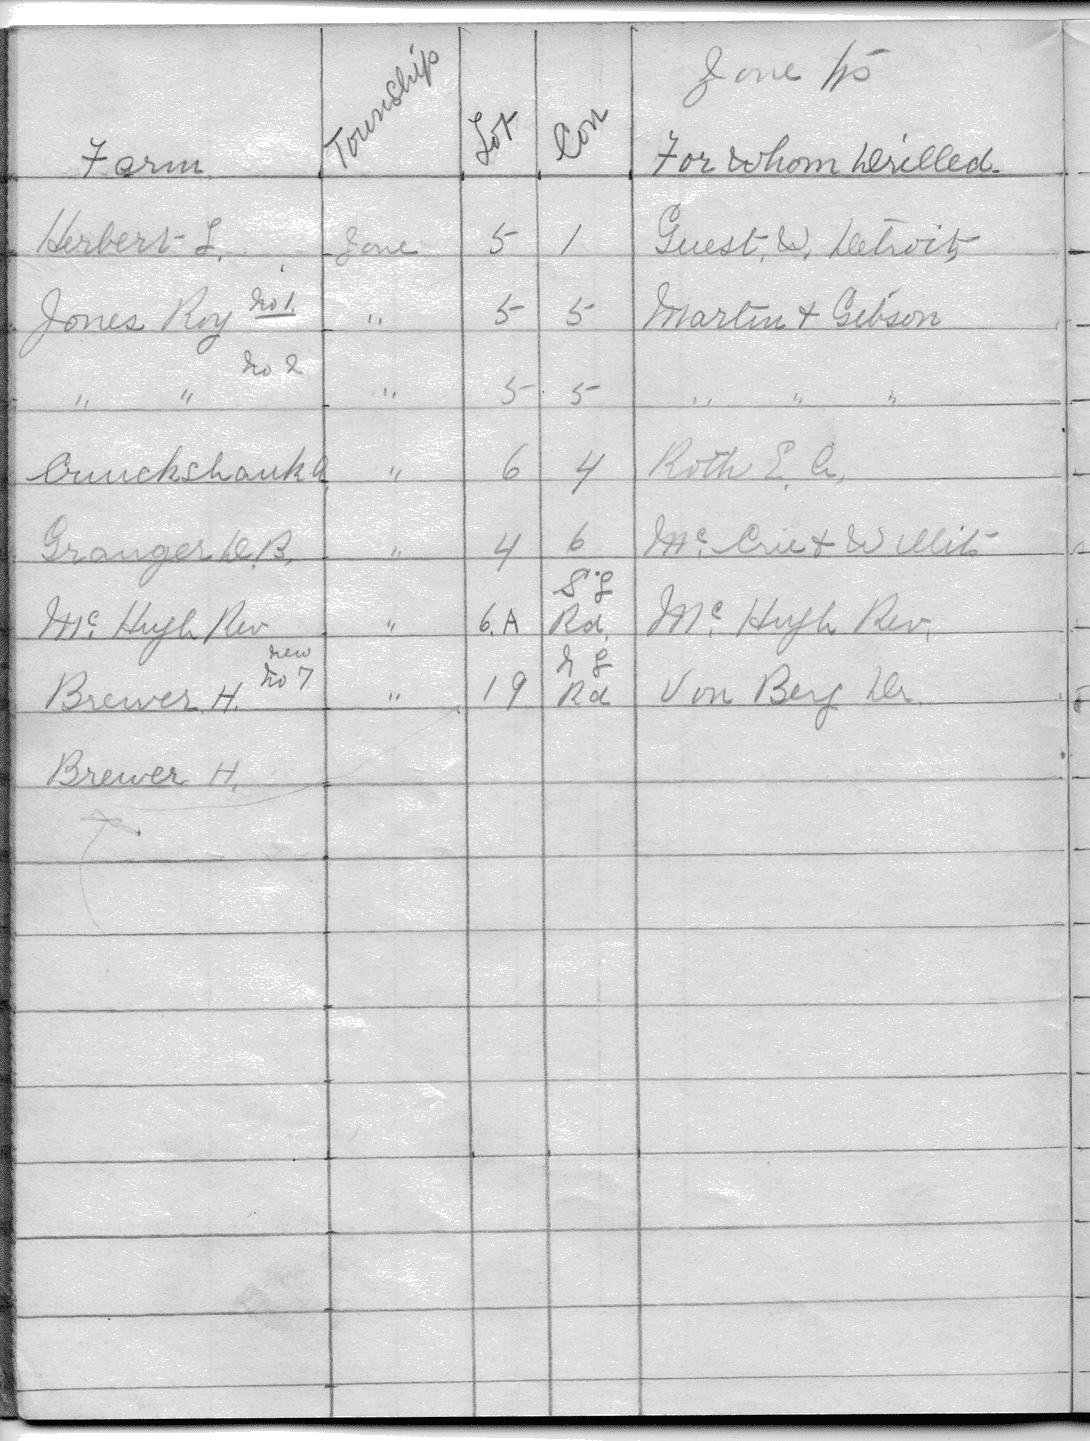 Zone Tp
Farm Township Lot Con For Whom Drilled.
Herbert L. Zone 5 1 Guest. W. Detroit
Jones Roy No 1. " 5 5 Martin + Gibson
" " No 2 " 5 5 " " "
Cruickshank A " 6 4 Roth E.
Granger D.B. " 4 6 Mc. Crie + Willits
Mc. Hugh Rev " 6.A S. L Rd. Mc. Hugh Rev.
Brewer H. new No 7 " 19 N L Rd Von Berg Dr.
Brewer H.